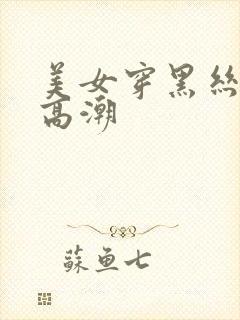 美女穿黑丝
高潮
苏鱼七